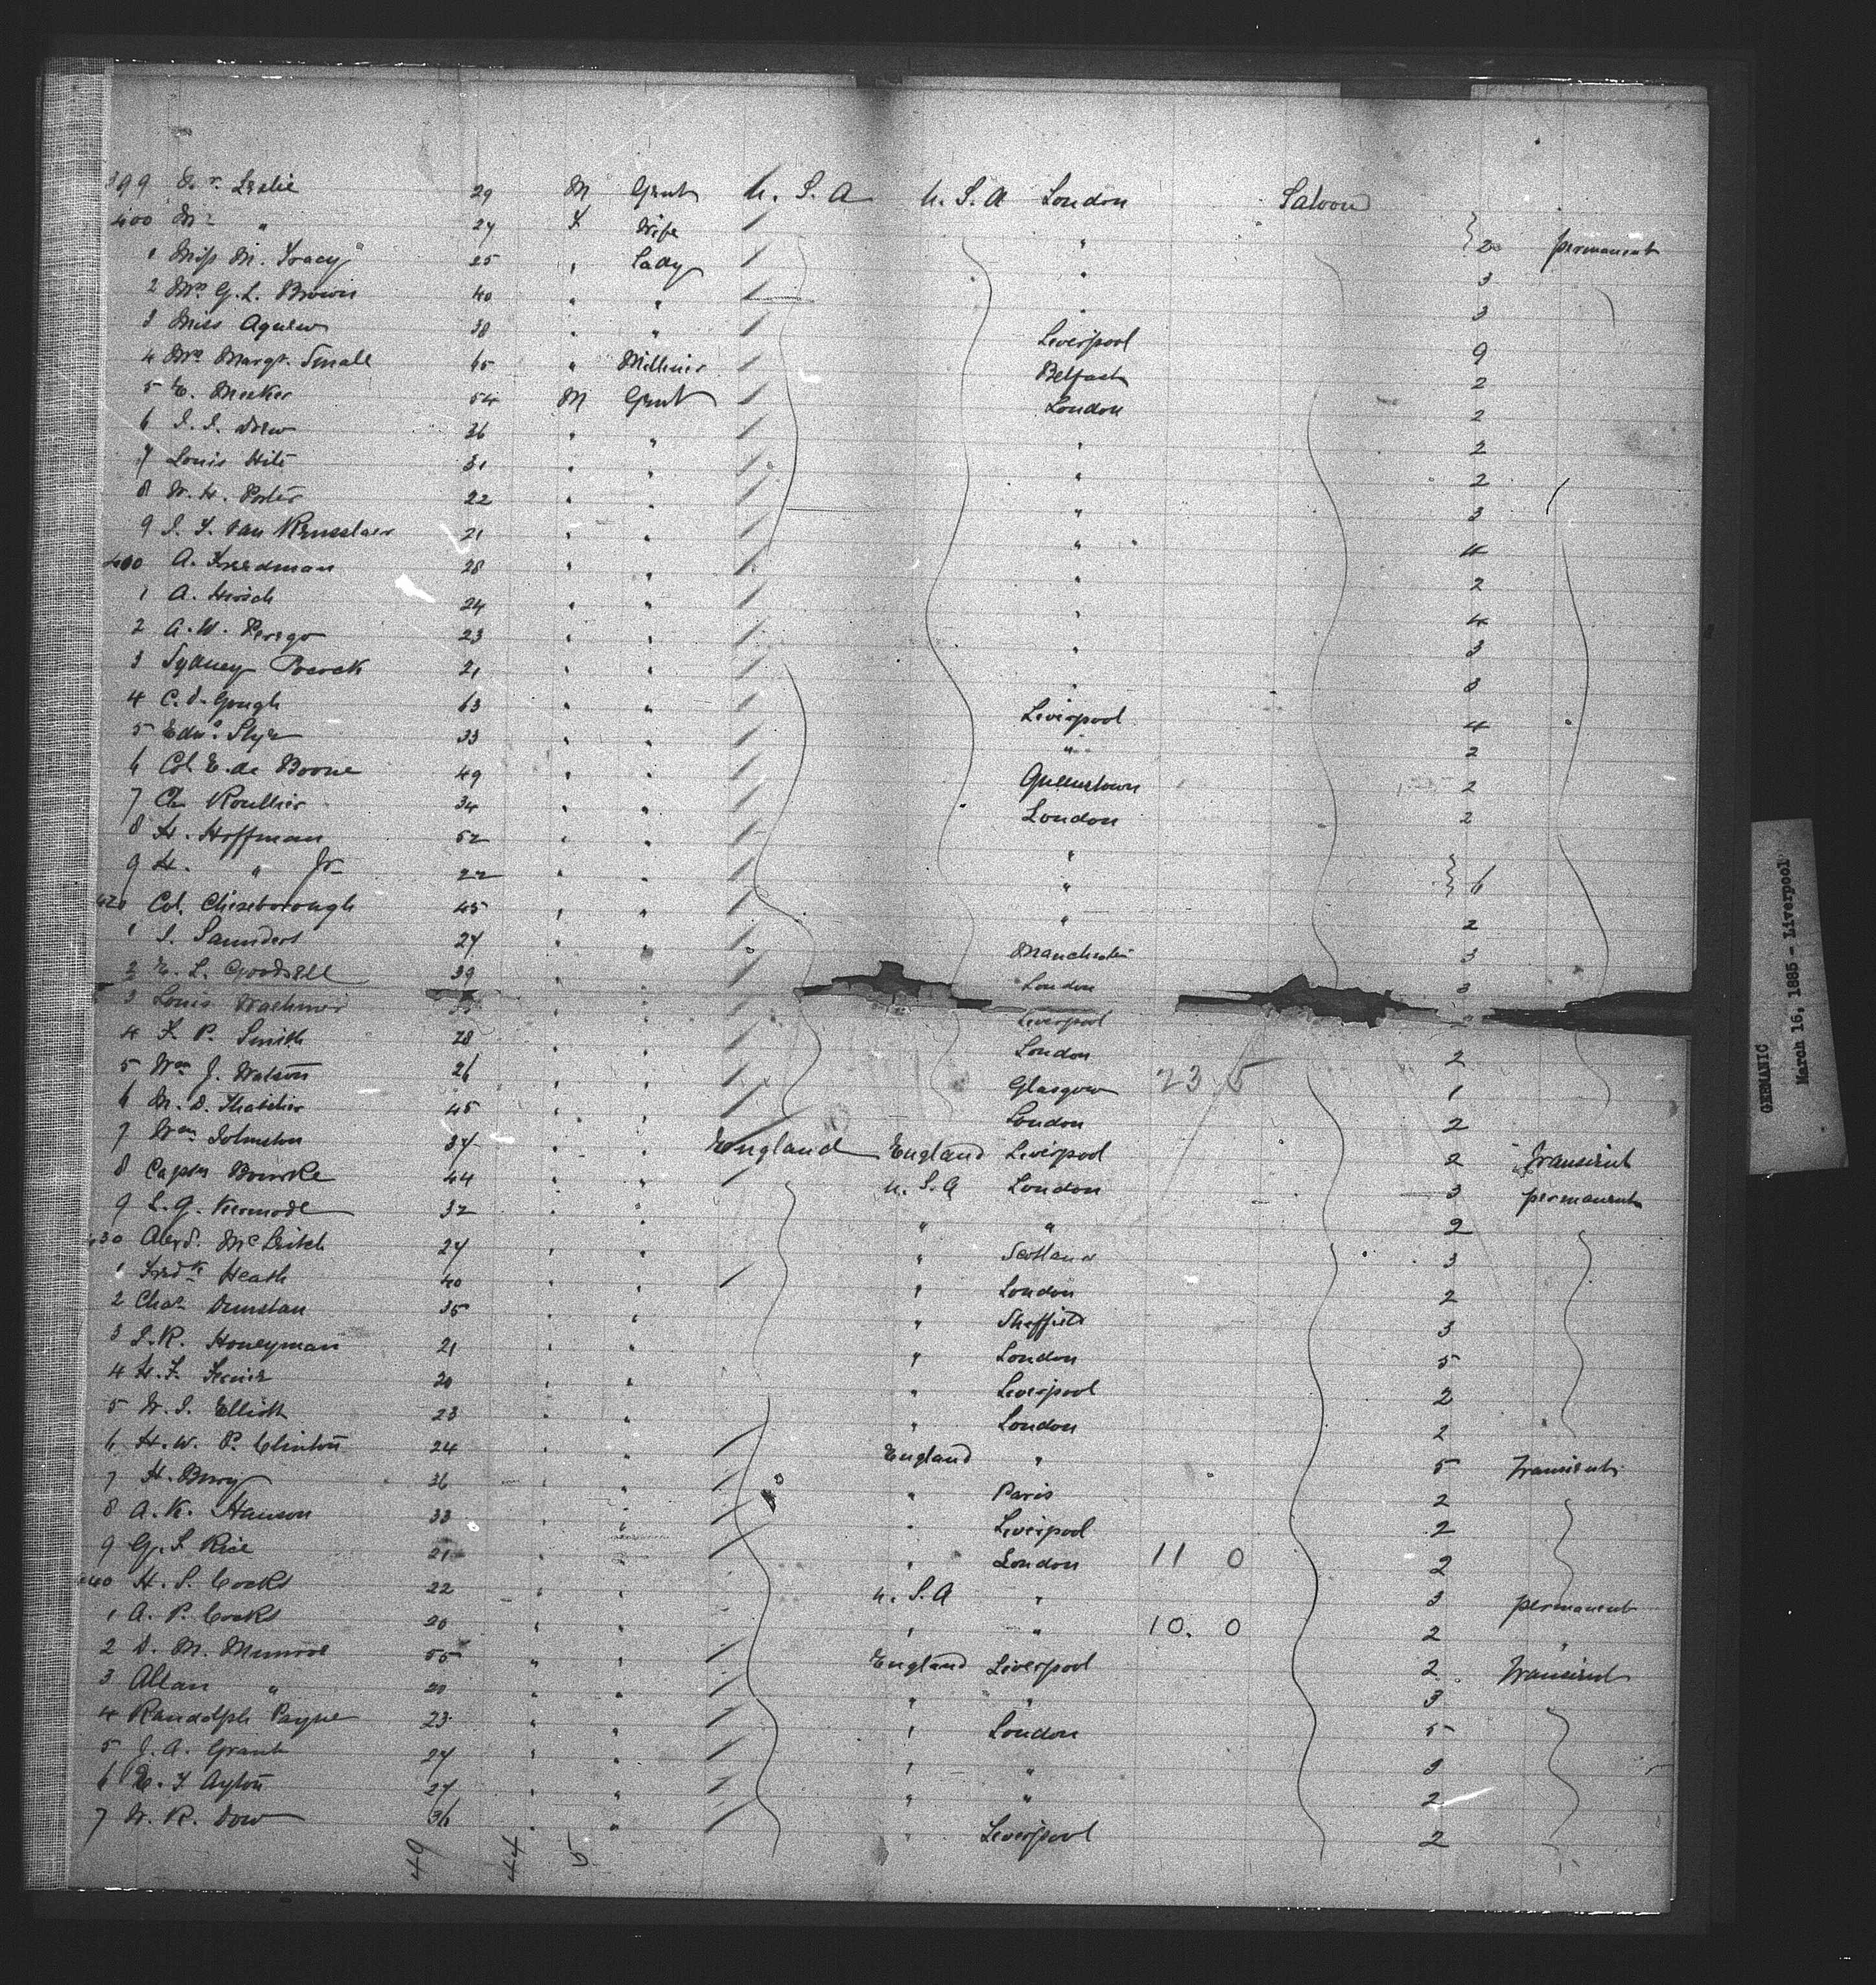 399 Dr. Leslie 29 M Gent U.S.A U.S.A London Saloon
400 Mrs " 27 F Wife " } 2 permanent
1 Miss M. Tracy 25 " Lady " 3
2 Mrs G. L. Brown 40 " " " 3
3 Miss Agnew 38 " " Liverpool 9
4 Mrs Margt. Small 45 " Milliner Belfast 2
5 E. Meeker 54 M Gent London 2
6 J. J. Drew 36 " " " 2
7 Louis Hite 31 " " " 2
8 W. H. Porter 22 " " " 3
9 J. T. van Rensslaer 21 " " " 4
400 A. Freedman 28 " " " 2
1 A. Hirsch 24 " " " 4
2 A. W. Perego 23 " " " 3
3 Sydney Pocock 21 " " " 8
4 C. D. Gough 63 " " Liverpool 4
5 Edwd. 33 " " " 2
6 Col. E. de Boone 49 " " Queenstown 2
7 Roullier 34 " " London 2
8 H. Hoffman 52 " " "
9 H. " Jr 22 " " " } 6
420 Col. Cheseborough 45 " " " 2
1 S. Saunders 27 " " Manchester 3
2 E. L. Goodsell 39 " " London 3
3 Louis " " Liverpool 2
4 F. P. Smith 28 " " London 2
5 Wm J. Watson 26 " " Glasgow 23 5 1
6 M. D. Thatcher 45 " " London 2
7 Wm Johnston 37 " " England England Liverpool 2 Transient
8 Captn Bourke 44 " " U.S.A London 3 permanent
9 L. G. Kermode 32 " " " " 2
430 Alexd. McLeitch 27 " " " Scotland 3
1 Fredk Heath 40 " " " London 2
2 Chas Dunstan 35 " " " Sheffield 3
3 J. R. Honeyman 21 " " " London 5
4 H. F. 30 " " " Liverpool 2
5 W. J. Elliott 23 " " " London 2
6 H. W. P. Clinton 24 " " England " 5 Transient
7 H. Bury 36 " " " Paris 2
8 A. K. Hanson 33 " " " Liverpool 2
9 G. S. Rice 21 " " " London 11 0 2
440 H. S. Cocks 22 " " U.S.A " 3 permanent
1 A. P. Cocks 20 " " " " 10. 0 2 "
2 D. M. Munroe 55 " " England Liverpool 2 Transient
3 Allan " 20 " " " " 3
4 Randolph Payne 23 " " " London 5
5 J. A. Grant 27 " " " " 3
6 E. T. Ayton 27 " " " " 2
7 W. R. Dow 36 " " " Liverpool 2
49 44 5
GERMANIC
March 16, 1885 - Liverpool